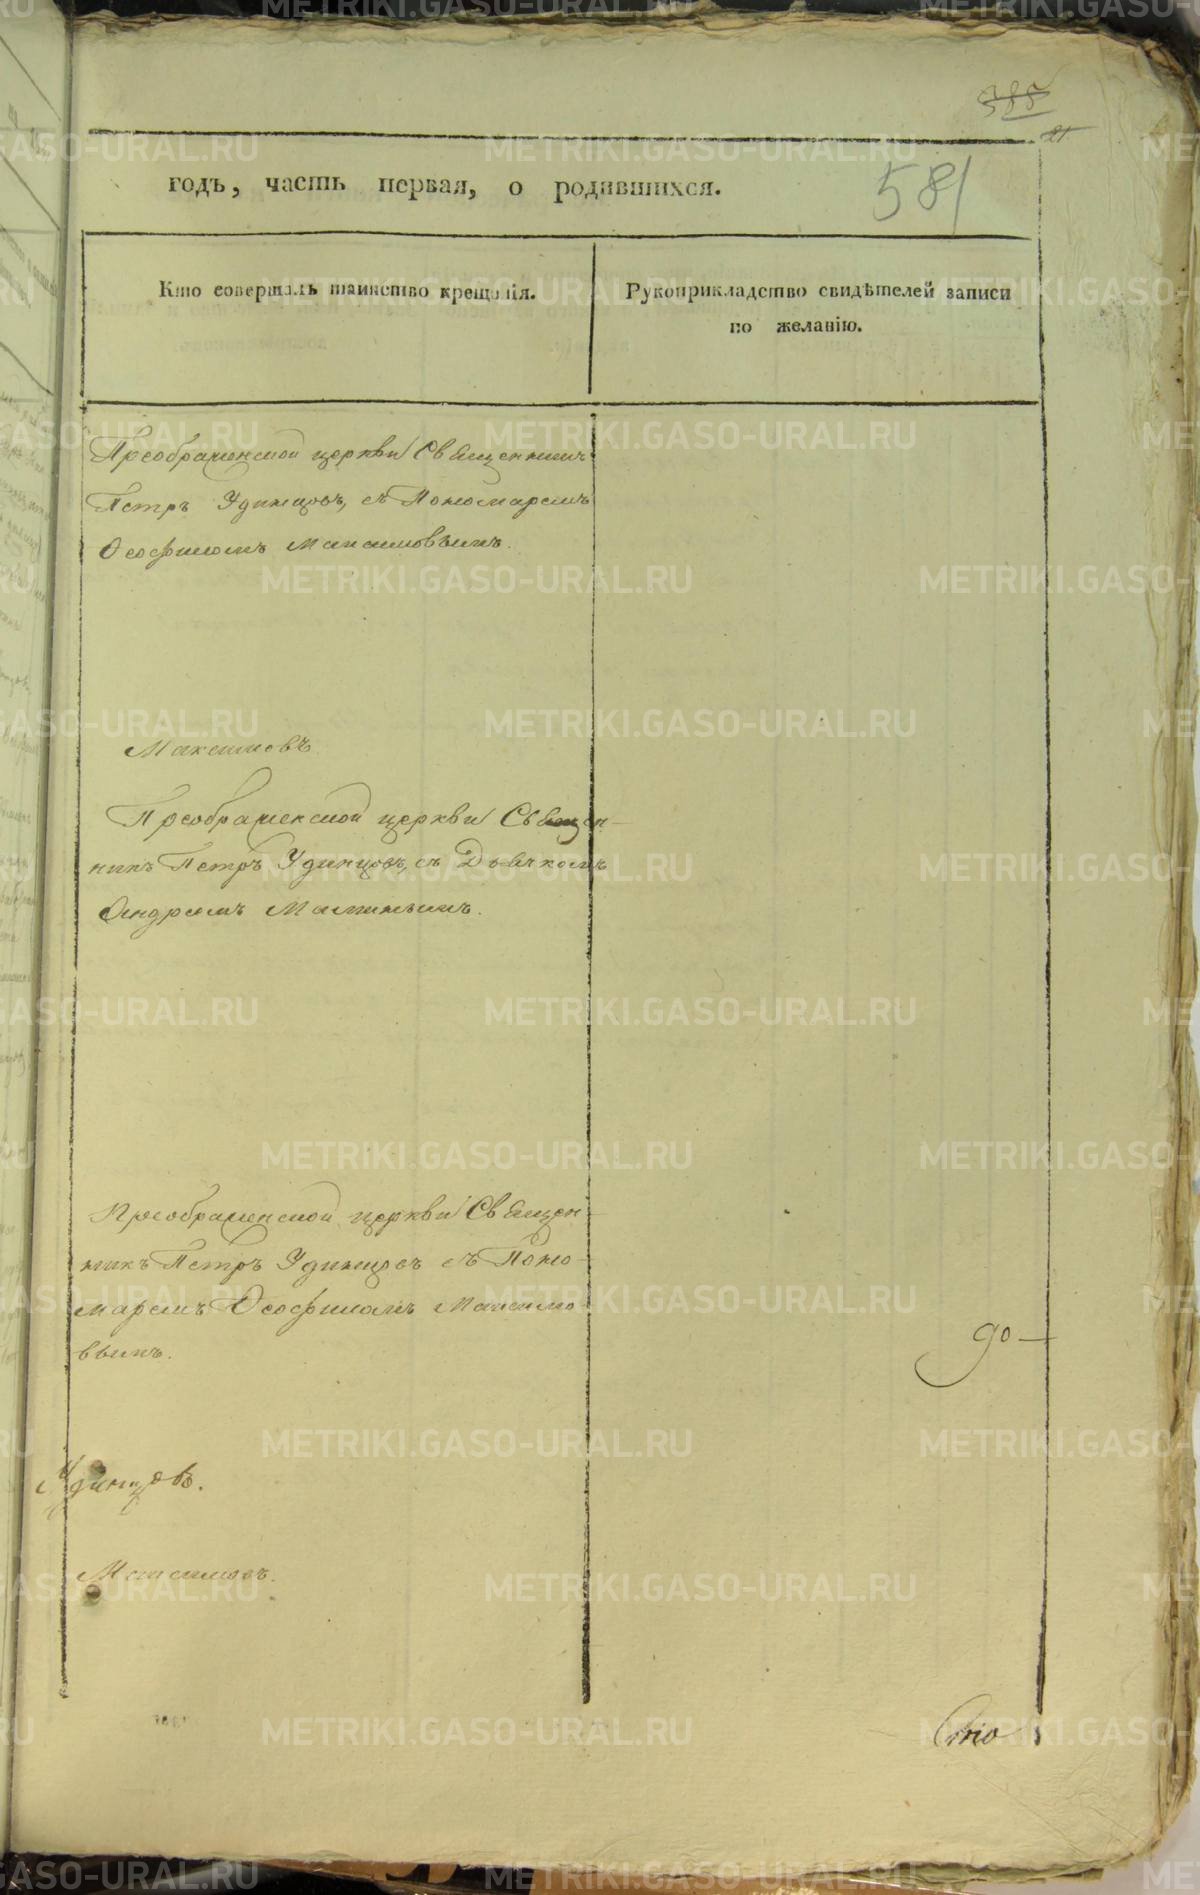 385
21
годъ, часть первая, о родившихся.
581
Кто совершалъ таинство крещенія.
Рукоприкладство свидѣтелей записи
по желанію.
Преображенской церкви Священникъ
Петръ Удинцовъ, съ Пономаремъ
Ѳеофиломъ Максимовымъ.
Максимовъ
Преображенской церкви Священ-
никъ Петръ Удинцовъ, съ Дьячкомъ
Андреемъ
Преображенской церкви Священ-
никъ Петръ Удинцовъ съ Поно-
маремъ Ѳеофиломъ Максимо-
вымъ.
до-
Удинцовъ.
Максимовъ.
METRIKI.GASO-URAL.RU